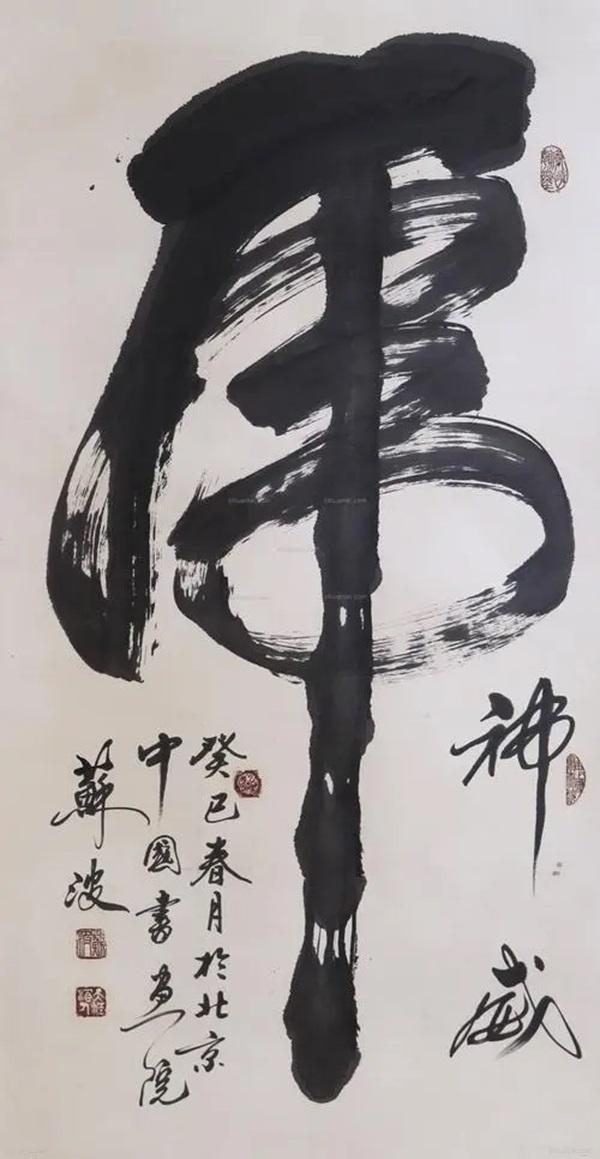 虎
神威
癸巳春月於北京
中國書画院
蘇波